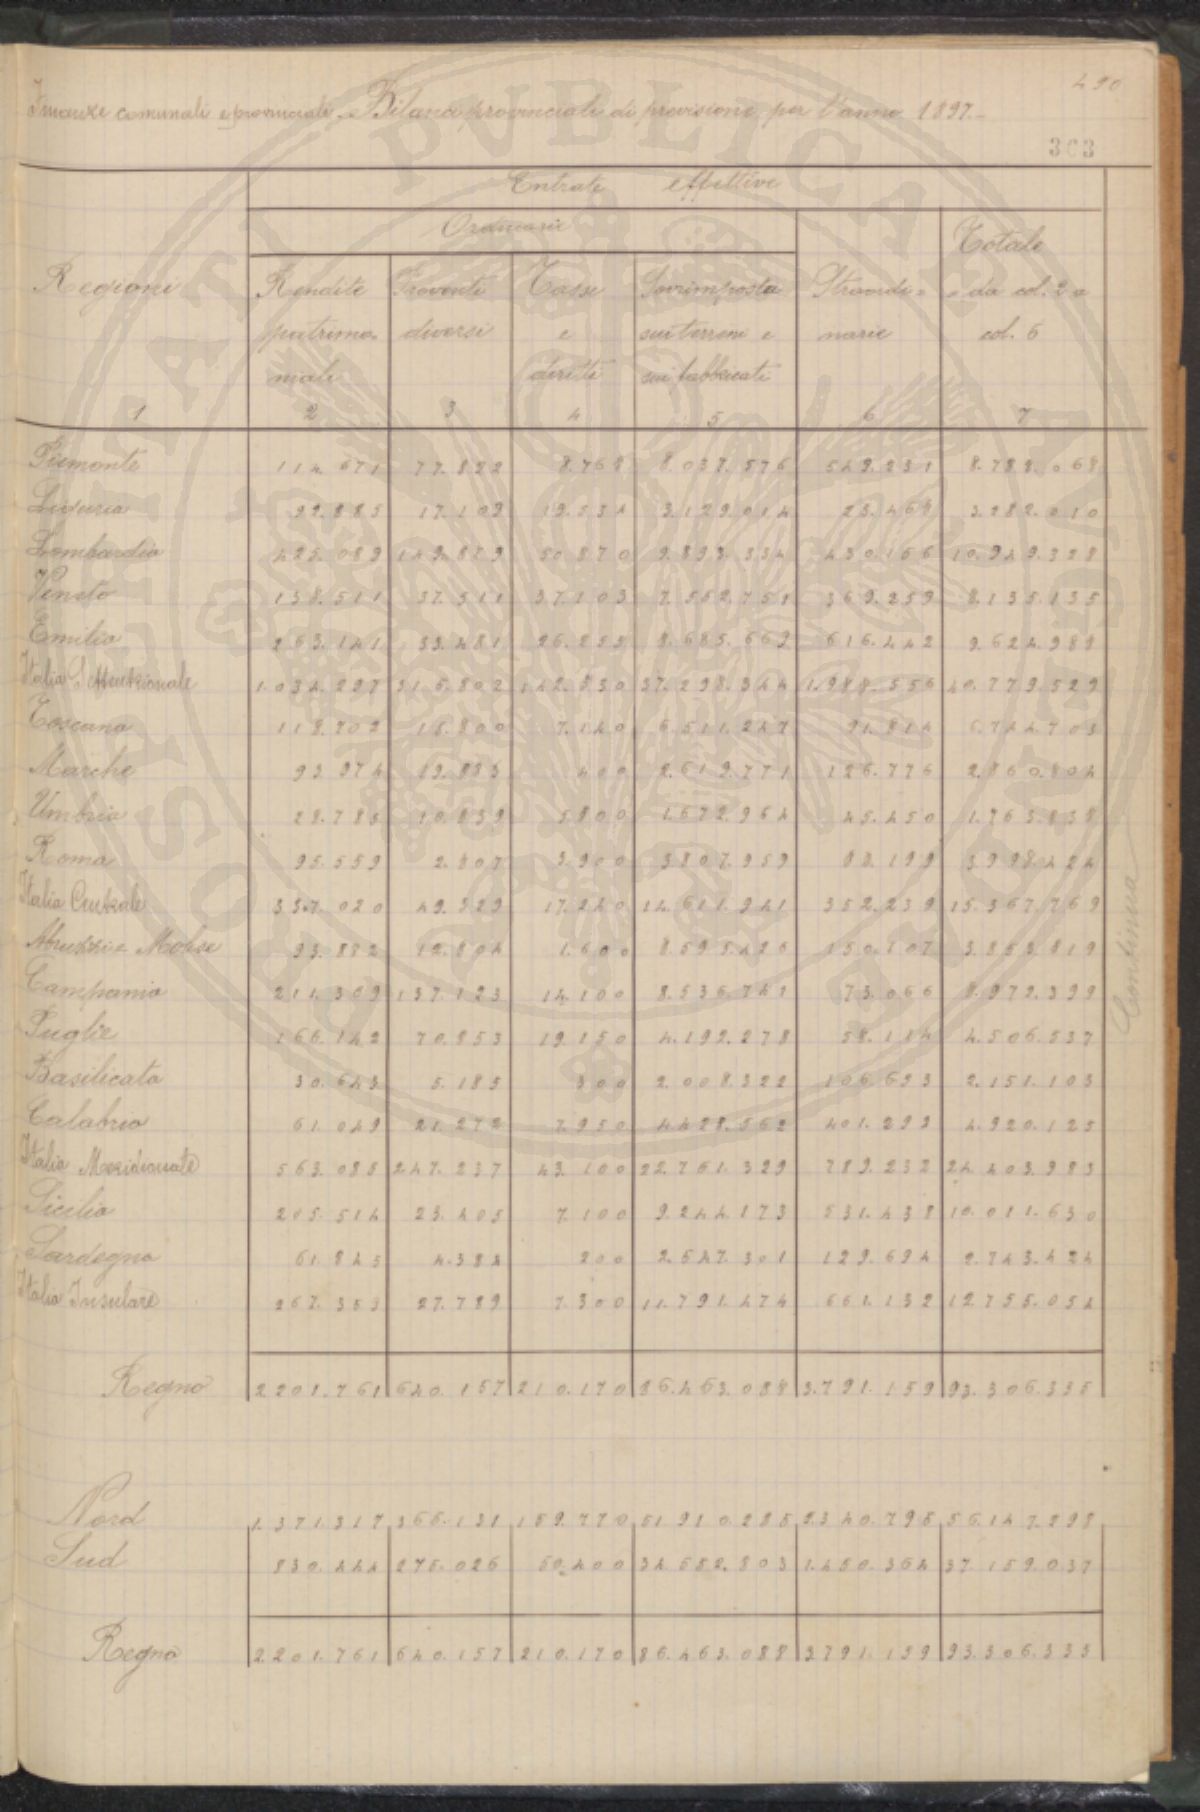 490
Finanze comunali e provinciali - Bilanci provinciali di previsione per l'anno 1897.
303
Entrate effettive
Ordinarie
Regioni Rendite patrimoniali Proventi diversi Tasse e diritti Sovrimposta sui terreni e sui fabbricati Straordinarie Totale da col. 2 a col. 6
1 2 3 4 5 6 7
Piemonte 114.671 77.822 8.768 8.037.576 549.231 8.788.068
Liguria 92.885 17.109 19.534 3.129.014 23.468 3.282.010
Lombardia 425.089 149.879 50.870 9.893.334 430.156 10.949.328
Veneto 138.511 37.511 37.103 7.552.751 369.259 8.135.135
Emilia 263.141 33.481 26.255 8.685.669 616.442 9.624.988
Italia Settentrionale 1.034.297 315.802 142.530 37.298.344 1.988.556 40.779.529
Toscana 118.702 15.800 7.140 6.511.247 91.814 6.744.703
Marche 93.974 19.883 400 2.619.771 126.776 2.860.804
Umbria 28.785 10.839 5.800 1.672.964 45.450 1.763.838
Roma 95.559 2.807 3.900 3.807.959 88.199 3.998.424
Italia Centrale 337.020 49.329 17.240 14.611.941 352.239 15.367.769
Abruzzi e Molise 93.882 12.804 1.600 3.595.426 150.107 3.853.819
Campania 211.369 137.123 14.100 8.536.741 73.066 8.972.399
Puglie 166.142 70.853 19.150 4.192.278 58.114 4.506.537
Basilicata 30.643 5.185 300 2.008.322 106.653 2.151.103
Calabria 61.049 21.272 7.950 4.428.562 401.292 4.920.125
Italia Meridionale 563.085 247.237 43.100 22.761.329 789.232 24.403.983
Sicilia 205.514 23.405 7.100 9.244.173 531.438 10.011.630
Sardegna 61.845 4.384 200 2.547.301 129.694 2.743.424
Italia Insulare 267.359 27.789 7.300 11.791.474 661.132 12.755.054
Regno 2.201.761 640.157 210.170 86.463.088 3.791.159 93.306.335
Continua
Nord 1.371.317 365.131 159.770 51.910.285 2.340.795 56.147.298
Sud 830.444 275.026 50.400 34.552.803 1.450.364 37.159.037
Regno 2.201.761 640.157 210.170 86.463.088 3.791.159 93.306.335